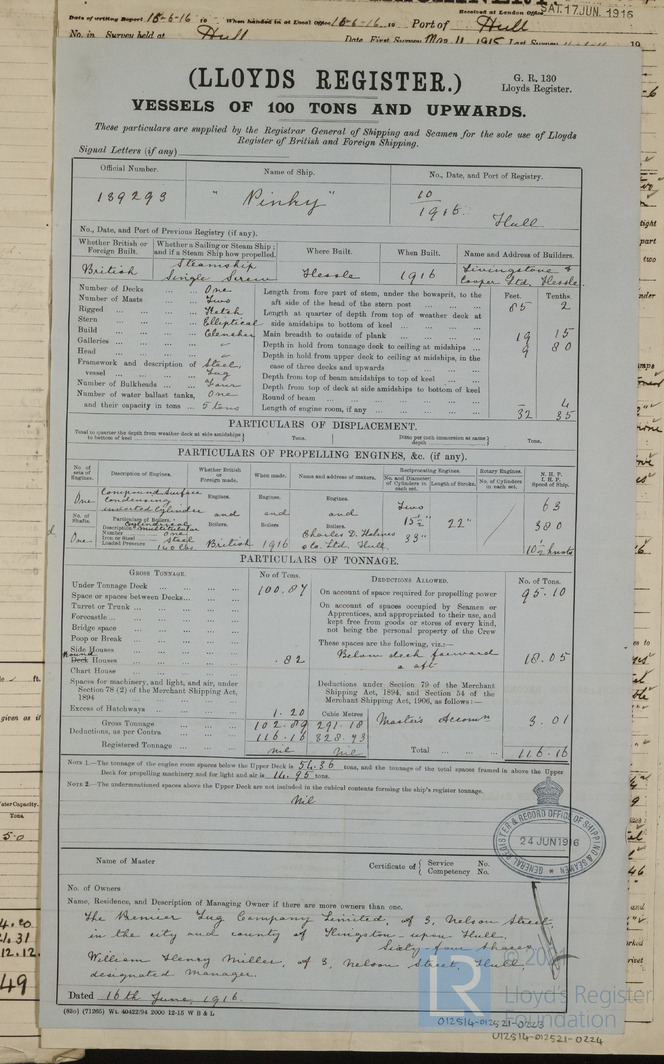 Date of writing Report 15-6-16 19 When handed in at Local Office 16-6-16 19 Port of Hull
Received at London Office SAT. 17 JUN. 1916
No. in Survey held at Hull Date, First Survey Mar. 11, 1915 Last Survey 19
(LLOYDS REGISTER.)
G. R. 130
Lloyds Register.
VESSELS OF 100 TONS AND UPWARDS.
These particulars are supplied by the Registrar General of Shipping and Seamen for the sole use of Lloyds
Register of British and Foreign Shipping.
Signal Letters (if any)
Official Number. Name of Ship. No., Date, and Port of Registry.
139293 "Pinky" 10/1916. Hull
No., Date, and Port of Previous Registry (if any).
Whether British or Foreign Built. Whether a Sailing or Steam Ship; and if a Steam Ship how propelled. Where Built. When Built. Name and Address of Builders.
British Steamship Single Screw Hessle 1916 Livingstone & Cooper Ltd, Hessle
Number of Decks One
Number of Masts Two
Rigged Ketch
Stern Elliptical
Build Clencher
Galleries
Head
Framework and description of vessel Steel, Tug
Number of Bulkheads Four
Number of water ballast tanks, and their capacity in tons One 5 tons
Feet. Tenths.
Length from fore part of stem, under the bowsprit, to the aft side of the head of the stern post 85 2
Length at quarter of depth from top of weather deck at side amidships to bottom of keel
Main breadth to outside of plank 19 15
Depth in hold from tonnage deck to ceiling at midships 9 80
Depth in hold from upper deck to ceiling at midships, in the case of three decks and upwards
Depth from top of beam amidships to top of keel
Depth from top of deck at side amidships to bottom of keel
Round of beam – 4
Length of engine room, if any 32 35
PARTICULARS OF DISPLACEMENT.
Total to quarter the depth from weather deck at side amidships to bottom of keel Tons. Ditto per inch immersion at same depth Tons.
PARTICULARS OF PROPELLING ENGINES, &c. (if any).
No. of sets of Engines. Description of Engines. Whether British or Foreign made. When made. Name and address of makers. Reciprocating Engines. Rotary Engines. N. H. P. I. H. P. Speed of Ship.
No. and Diameter of Cylinders in each set. Length of Stroke. No. of Cylinders in each set.
One Compound Surface Condensing inverted Cylinder Engines. Engines. Engines. Two 63
No. of Shafts. Particulars of Boilers. and and and 15½" 22" 380
Description Cylindrical multitubular Boilers. Boilers Boilers 33"
Number one
One Iron or Steel Steel British 1916 Charles D. Holmes & Co. Ltd, Hull
Loaded Pressure 140 lbs. 10½ knots
PARTICULARS OF TONNAGE.
GROSS TONNAGE. No of Tons. DEDUCTIONS ALLOWED. No. of Tons.
Under Tonnage Deck 100.87
Space or spaces between Decks
Turret or Trunk
Forecastle
Bridge space
Poop or Break
Side Houses
Deck Houses Round .82
Chart House
Spaces for machinery, and light, and air, under Section 78 (2) of the Merchant Shipping Act, 1894
Excess of Hatchways 1.20
Cubic Metres
Gross Tonnage 102.89 291.18
Deductions, as per Contra 116.16 328.73
Registered Tonnage Nil Nil
On account of space required for propelling power 95.10
On account of spaces occupied by Seamen or Apprentices, and appropriated to their use, and kept free from goods or stores of every kind, not being the personal property of the Crew
These spaces are the following, viz.:—
Below deck forward & aft 18.05
Deductions under Section 79 of the Merchant Shipping Act, 1894, and Section 54 of the Merchant Shipping Act, 1906, as follows:—
Master's Accomn 3.01
Total 116.16
NOTE 1.—The tonnage of the engine room spaces below the Upper Deck is 54.36 tons, and the tonnage of the total spaces framed in above the Upper
Deck for propelling machinery and for light and air is 14.95 tons.
NOTE 2.—The undermentioned spaces above the Upper Deck are not included in the cubical contents forming the ship's register tonnage.
Nil
GENERAL REGISTER & RECORD OFFICE OF SHIPPING & SEAMEN
24 JUN 1916
Name of Master Certificate of Service No. Competency No.
No. of Owners
Name, Residence, and Description of Managing Owner if there are more owners than one.
The Premier Tug Company Limited, of 3, Nelson Street
in the city and county of Kingston-upon Hull,
Sixty-four Shares
William Henry Miller, of 3, Nelson Street, Hull,
designated manager.
Dated 16th June, 1916.
(83o) (71265) Wt. 40422/94 2000 12-15 W B & L
© 2021
LR
Lloyd's Register
Foundation
012514-012521-0223
012514-012521-0224